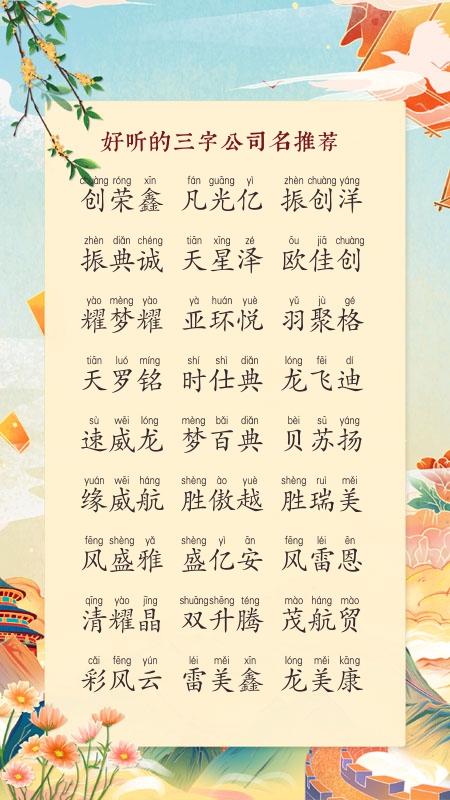 好听的三字公司名推荐
chuàng róng xīn fán guāng yì zhèn chuàng yáng
创荣鑫 凡光亿 振创洋
zhèn diǎn chéng tiān xīng zé ōu jiā chuàng
振典诚 天星泽 欧佳创
yào mèng yào yà huán yuè yǔ jù gé
耀梦耀 亚环悦 羽聚格
tiān luó míng shí shì diǎn lóng fēi dí
天罗铭 时仕典 龙飞迪
sù wēi lóng mèng bǎi diǎn bèi sū yáng
速威龙 梦百典 贝苏扬
yuán wēi háng shèng ào yuè shèng ruì měi
缘威航 胜傲越 胜瑞美
fēng shèng yǎ shèng yì ān fēng léi ēn
风盛雅 盛亿安 风雷恩
qīng yào jīng shuāng shēng téng mào háng mào
清耀晶 双升腾 茂航贸
cǎi fēng yún léi měi xīn lóng měi kāng
彩风云 雷美鑫 龙美康